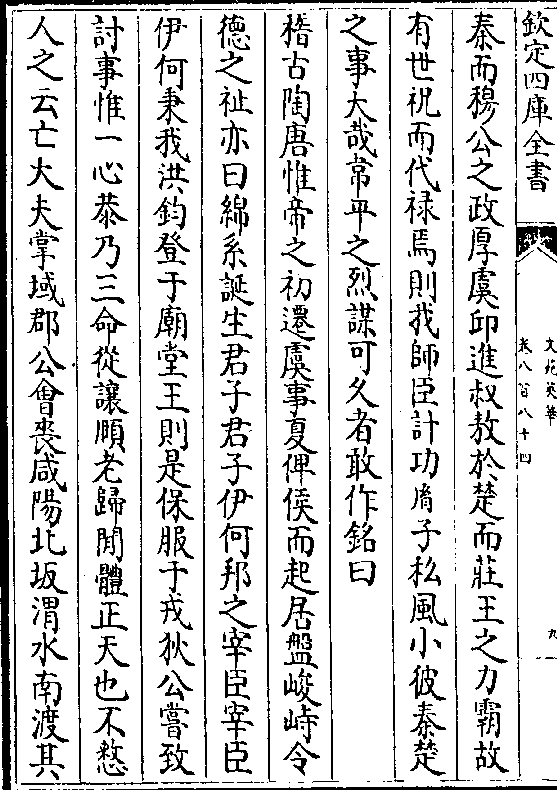 欽定四庫全書
文苑英華
卷八百八十四
九
秦而穆公之政厚虞卭進叔敖於楚而莊王之力霸故
有世祝而代禄焉則我師臣計功脩子私風小彼秦楚
之事大哉常平之烈謀可久者敢作銘曰
稽古陶唐惟帝之初遷虞事夏俾侯而起居盤峻峙令
德之祉亦曰綿系誕生君子君子伊何邦之宰臣宰臣
伊何秉我洪鈞登于廟堂王則是保服于戎狄公嘗致
討事惟一心恭乃三命從讓願老歸閒體正天也不憗
人之云亡大夫掌域郡公會喪咸陽北坂渭水南渡其